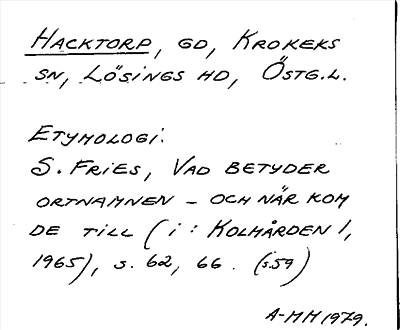 HACKTORP, GD, KROKEKS
SN, LÖSINGS HD, ÖSTG.L.
ETYMOLOGI:
S. FRIES, VAD BETYDER
ORTNAMNEN – OCH NÄR KOM
DE TILL (i: KOLMÅRDEN 1,
1965), s. 62, 66. (s.59)
A-MM 1979.